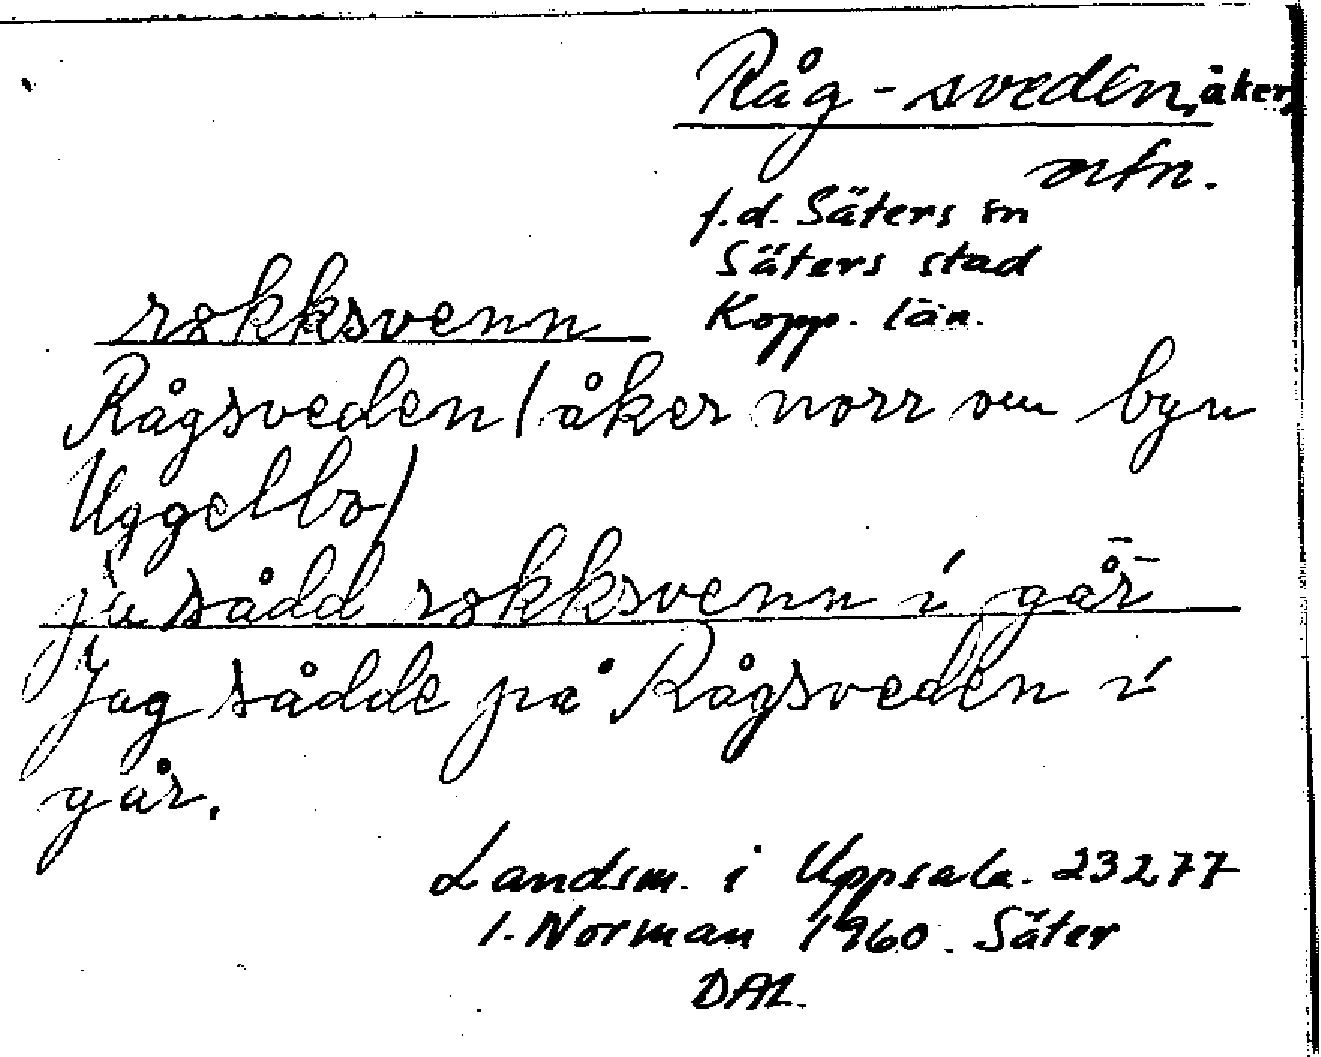 Råg-sveden, åker,
ntn.
f.d. Säters sn
Säters stad
Kopp. län.
rokksvenn
Rågsveden (åker norr om byn
Uggelbo)
ja sådd rokksvenn i går
Jag sådde på Rågsveden i
går.
Landsm. i Uppsala. 23277
I. Norman 1960. Säter
DAL.